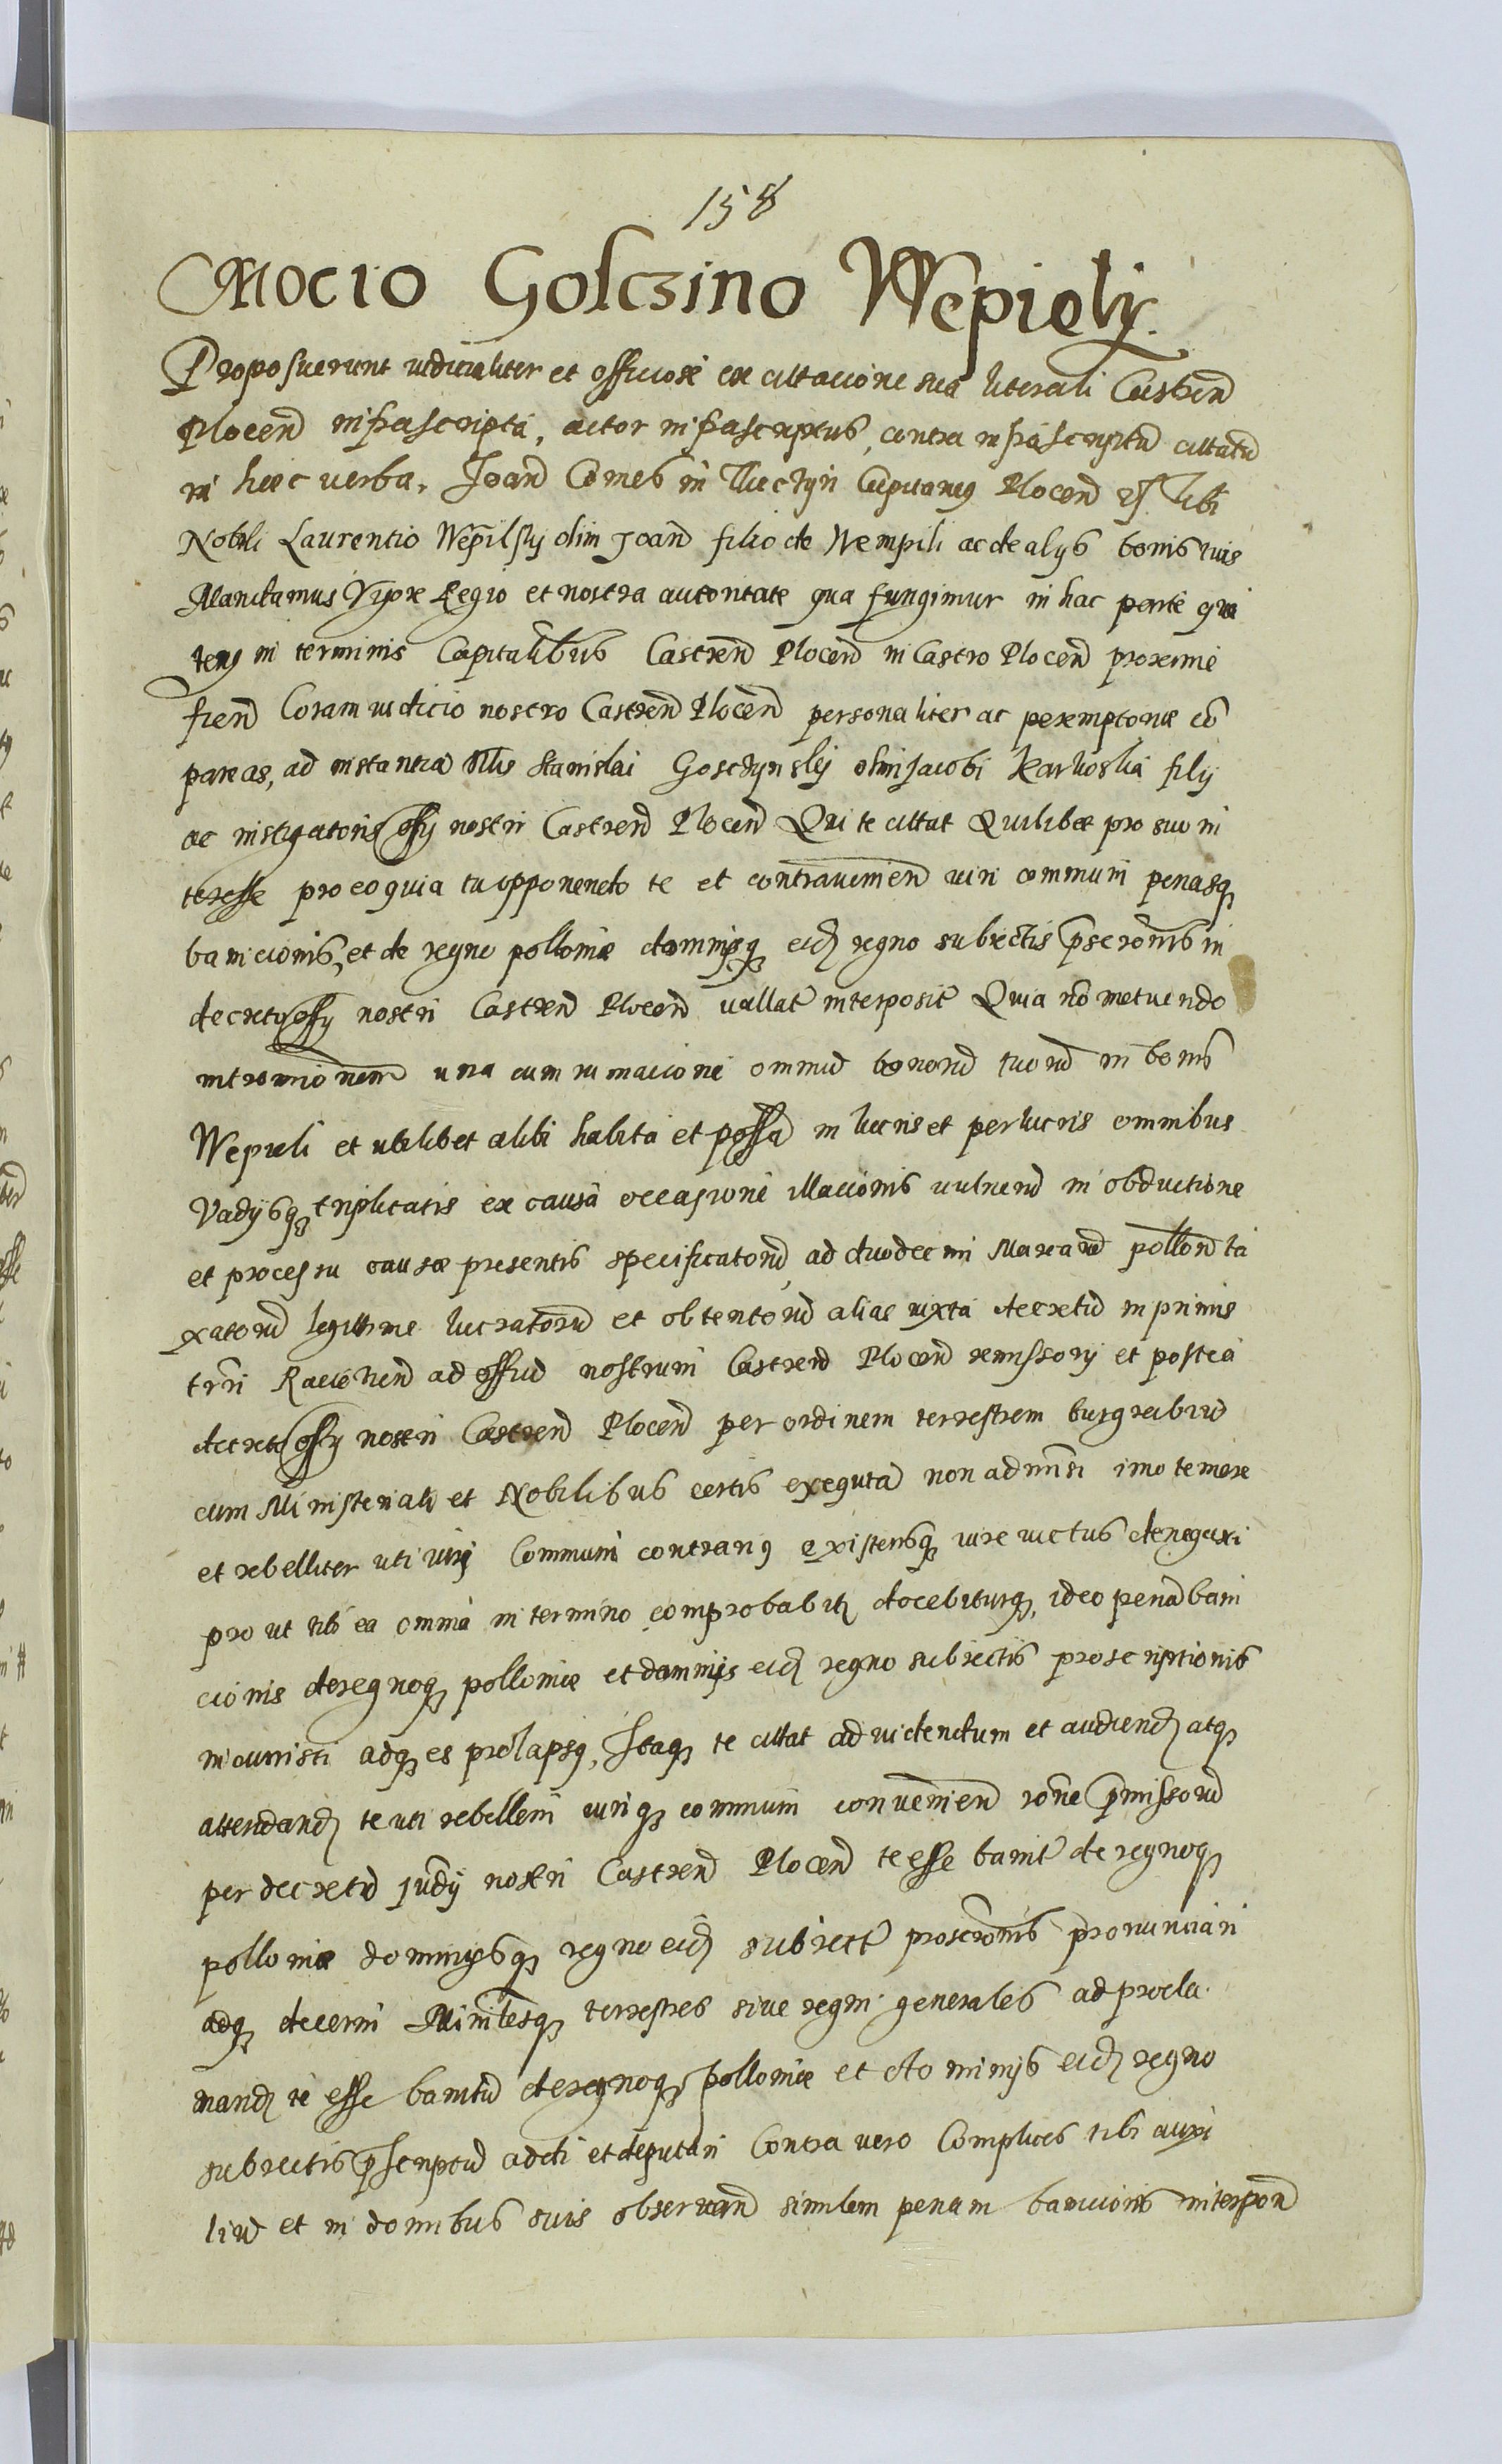 158
Mocio Golczino Wepiely.
Proposuerunt iudicialiter et officiose ex cittacione sua literali Castren
Plocen infrascripta, actor infrascriptus, contra infrascriptũ cittatũ
in hæc verba. Joan Comes in Capitaneus Plocen Tibi
Nobili Laurentio Wepilsky olim Joan filio de Wempili ac de alÿs bonis tuis
Mandamus Regio et nostra autoritate qua fungimur in hac parte qua
tenq in terminis Capitalibus Castren Plocen in Castro Plocen proxime
fien Coram iudicio nostro Castren Plocen personaliter ac peremptorie cõ
pareas, ad instantiã Stanislai olim Jacobi filÿ
ac instigatoris offÿ nostri Castren Plocen Qui te cittat Quilibet pro suo in
teresse pro eo quia tu opponendo te et contravenien iuri communi penasq
banicionis, et de regno polloniæ dominÿsq eid regno subiectis pscronis in
decreto offÿ nostri Castren Plocen vallat interposit Quia nõ metuendo
intromionem una cum rumacione omniũ bonorũ tuorũ in bonis
Wepieli et ubilibet alibi habita et possa in lucris et perlucris omnibus
Vadÿsq triplicatis ex causa occasione illacionis vulnerũ in obductione
et processu causæ presentis specificatorũ ad duodecim Marcarũ pollon ta
xatorũ legittime lucratorũ et obtentorũ alias iuxta decretũ in primis
trñi ad offiũ nostrum Castren Plocen remissorÿ et postea
decret offÿ nostri Castren Plocen per ordinem terrestrem burgrabiũ
cum Ministeriali et Nobilibus certis exequta non admisi imo temere
et rebelliter uti iuri Communi contrariq existensq iure victus denegaxi
pro ut tibi ea omnia in termino comprobabit docebiturq, ideo penã bani
cionis de regnoq polloniæ et dominÿs eid regno subiectis proscriptionis
incurristi adq es prolapsq, Itaq te cittat ad videndum et audiend atq
attendand te uti rebellem iuriq communi convenien rõne pmissorũ
per decretũ judÿ nostri Castren Plocen te esse banit de regnoq
polloniæ dominÿsq regno eid subiect proscronis pronunciari
adq decerni Minitesq terrestres sive regni generales ad procla
mand te esse banitũ de regnoq polloniæ et dominÿs eid regno
subiectis pscriptũ addi et deputari Contra vero Complices tibi auxi
liũ et in domibus suis observan similem penam banicionis interpon